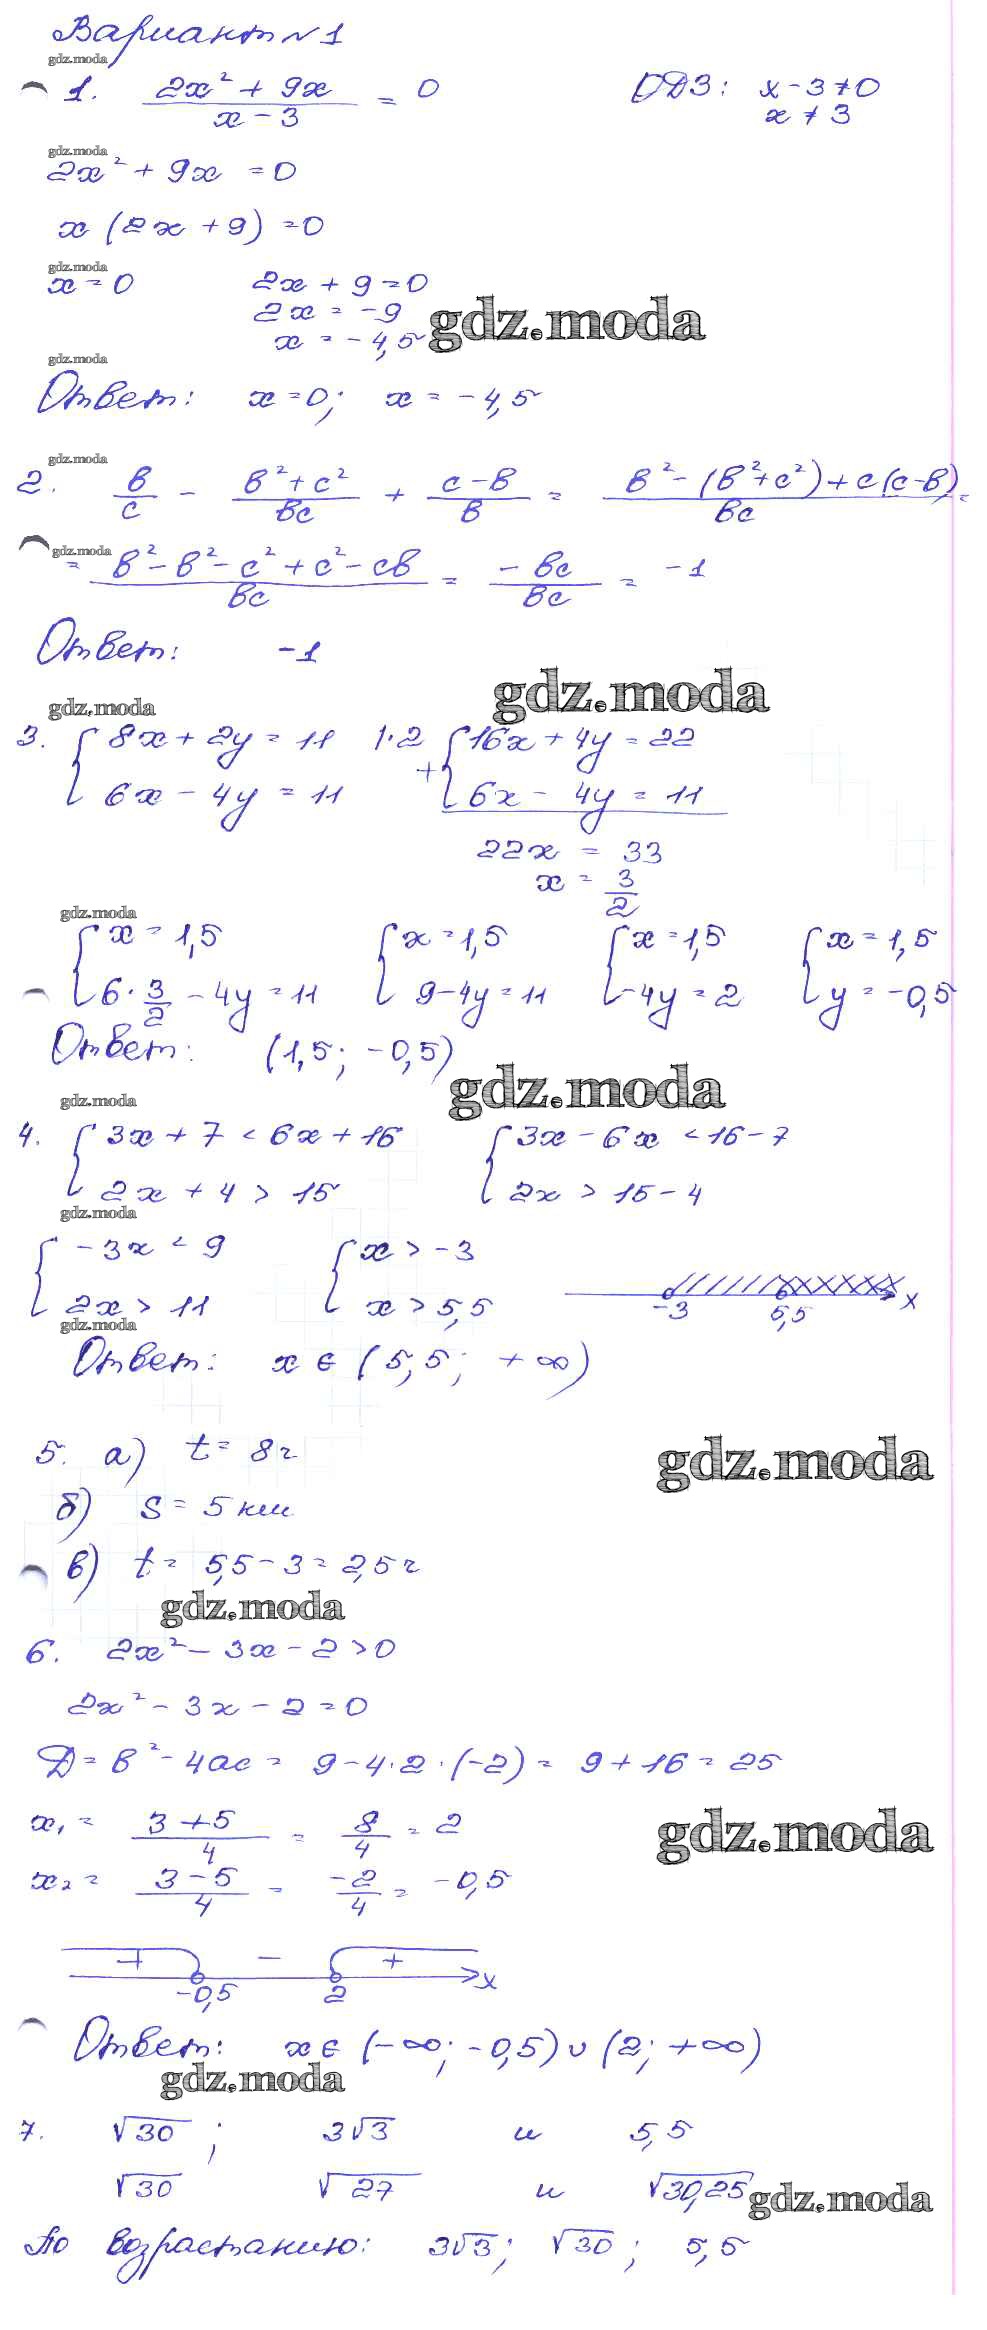 Вариант №1
gdz.moda
1. (2x² + 9x)/(x - 3) = 0 ОДЗ: x - 3 ≠ 0
x ≠ 3
gdz.moda
2x² + 9x = 0
x (2x + 9) = 0
gdz.moda
x = 0 2x + 9 = 0
2x = -9
gdz.moda
x = -4,5
gdz.moda
Ответ: x = 0; x = -4,5
gdz.moda
2. в/с - (в² + с²)/вс + (с - в)/в = (в² - (в² + с²) + с(с - в))/вс =
gdz.moda
= (в² - в² - с² + с² - св)/вс = -вс/вс = -1
Ответ: -1
gdz.moda
gdz.moda
3. { 8x + 2y = 11 |·2 { 16x + 4y = 22
6x - 4y = 11 + 6x - 4y = 11
22x = 33
x = 3/2
gdz.moda
{ x = 1,5 { x = 1,5 { x = 1,5 { x = 1,5
6 · 3/2 - 4y = 11 9 - 4y = 11 -4y = 2 y = -0,5
Ответ: (1,5; -0,5)
gdz.moda
gdz.moda
4. { 3x + 7 < 6x + 16 { 3x - 6x < 16 - 7
2x + 4 > 15 2x > 15 - 4
gdz.moda
{ -3x < 9 { x > -3
2x > 11 x > 5,5 -3 5,5 x
gdz.moda
Ответ: x ∈ (5,5; +∞)
5. а) t = 8ч
gdz.moda
б) S = 5 км
в) t = 5,5 - 3 = 2,5 ч
gdz.moda
6. 2x² - 3x - 2 > 0
2x² - 3x - 2 = 0
Д = в² - 4ас = 9 - 4·2·(-2) = 9 + 16 = 25
x₁ = (3 + 5)/4 = 8/4 = 2
gdz.moda
x₂ = (3 - 5)/4 = -2/4 = -0,5
+ - +
-0,5 2 x
Ответ: x ∈ (-∞; -0,5) ∪ (2; +∞)
gdz.moda
7. √30 ; 3√3 и 5,5
√30 √27 и √30,25
gdz.moda
По возрастанию: 3√3; √30; 5,5